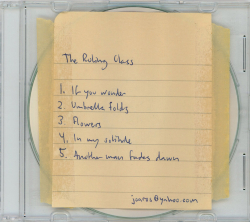 The Ruling Class
1. If you wonder
2. Umbrella folds
3 Flowers
4. In my solitude
5. Another man fades down